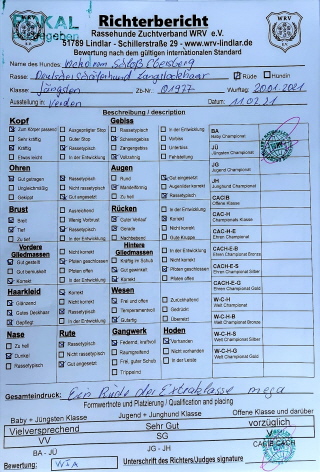 POKAL
Richterbericht
Rassehunde Zuchtverband WRV e.V.
51789 Lindlar - Schillerstraße 29 - www.wrv-lindlar.de
Bewertung nach dem gültigen internationalen Standard
WRV
Name des Hundes: vom Schloß
Rasse: Deutscher Schäferhund Langstockhaar Rüde Hündin
Klasse: Jüngsten Zb-Nr.: 01977 Wurftag: 20.01.2021
Ausstellung in: Verden Datum: 11.07.21
Beschreibung / description
Kopf Gebiss
Zum Körper passend Ausgeprägter Stop Rassetypisch In der Entwicklung
Sehr kräftig Guter Stop Scherengebiss Rassetypisch
Kräftig Rassetypisch Zangengebiss Nicht rassetypisch
Etwas leicht In der Entwicklung Vollzahnig Fehlstellung
BA Baby Champion
JÜ Jüngsten Champion
Ohren Augen
Gut getragen Rassetypisch Rund Gut eingesetzt
Ungleichmäßig Nicht rassetypisch Mandelförmig Augenlider korrekt
Gekippt Gut angesetzt Rassetypisch
JG Jugend Champion
JH Junghund Champion
Brust Rücken
Breit Ausreichend Guter Verlauf In der Entwicklung
Tief Wenig Vorbrust Gerade Korrekt
Zu tief Rassetypisch Nachgebend Nicht korrekt
In der Entwicklung Überbaut Gute Kruppe
CACIB
CAC-H Champions Hunde
CAC-H-E Ehren Champion
CAC-H-E-B Ehren Champion Bronze
CAC-H-E-S Ehren Champion Silber
CAC-H-E-G Ehren Champion Gold
Vordere Gliedmassen Hintere Gliedmassen
Gut gestellt Nicht korrekt Kräftig im Schub In der Entwicklung
Gut bemuskelt Pfoten geschlossen Gut gewinkelt Nicht korrekt
Korrekt Pfoten offen Korrekt Pfoten geschlossen
In der Entwicklung Pfoten offen
Haarkleid Wesen
Glänzend Korrekt Frei und offen Zurückhaltend
Gutes Deckhaar Nicht korrekt Temperamentvoll Gedrückt
Gepflegt Rassetypisch Gutartig Übereizt
W-C-H Welt Champion
W-C-H-B Welt Champion Bronze
W-C-H-S Welt Champion Silber
W-C-H-G Welt Champion Gold
Nase Rute Gangwerk Hoden
Zu hell Rassetypisch Federnd, kraftvoll Vorhanden
Dunkel Nicht rassetypisch Raumgreifend Nicht vorhanden
Rassetypisch Gut angesetzt Frei, guter Schub In der Leiste
In der Entwicklung Trippelnd
Gesamteindruck: Ein Rüde der Extraklasse mega
Formwertnote und Platzierung / Qualification and placing
Baby + Jüngsten Klasse Jugend + Junghund Klasse Offene Klasse und darüber
Vielversprechend Sehr Gut vorzüglich
VV SG V
BA - JÜ JG - JH CACIB CACH
Bewertung: Unterschrift des Richters/Judges signature